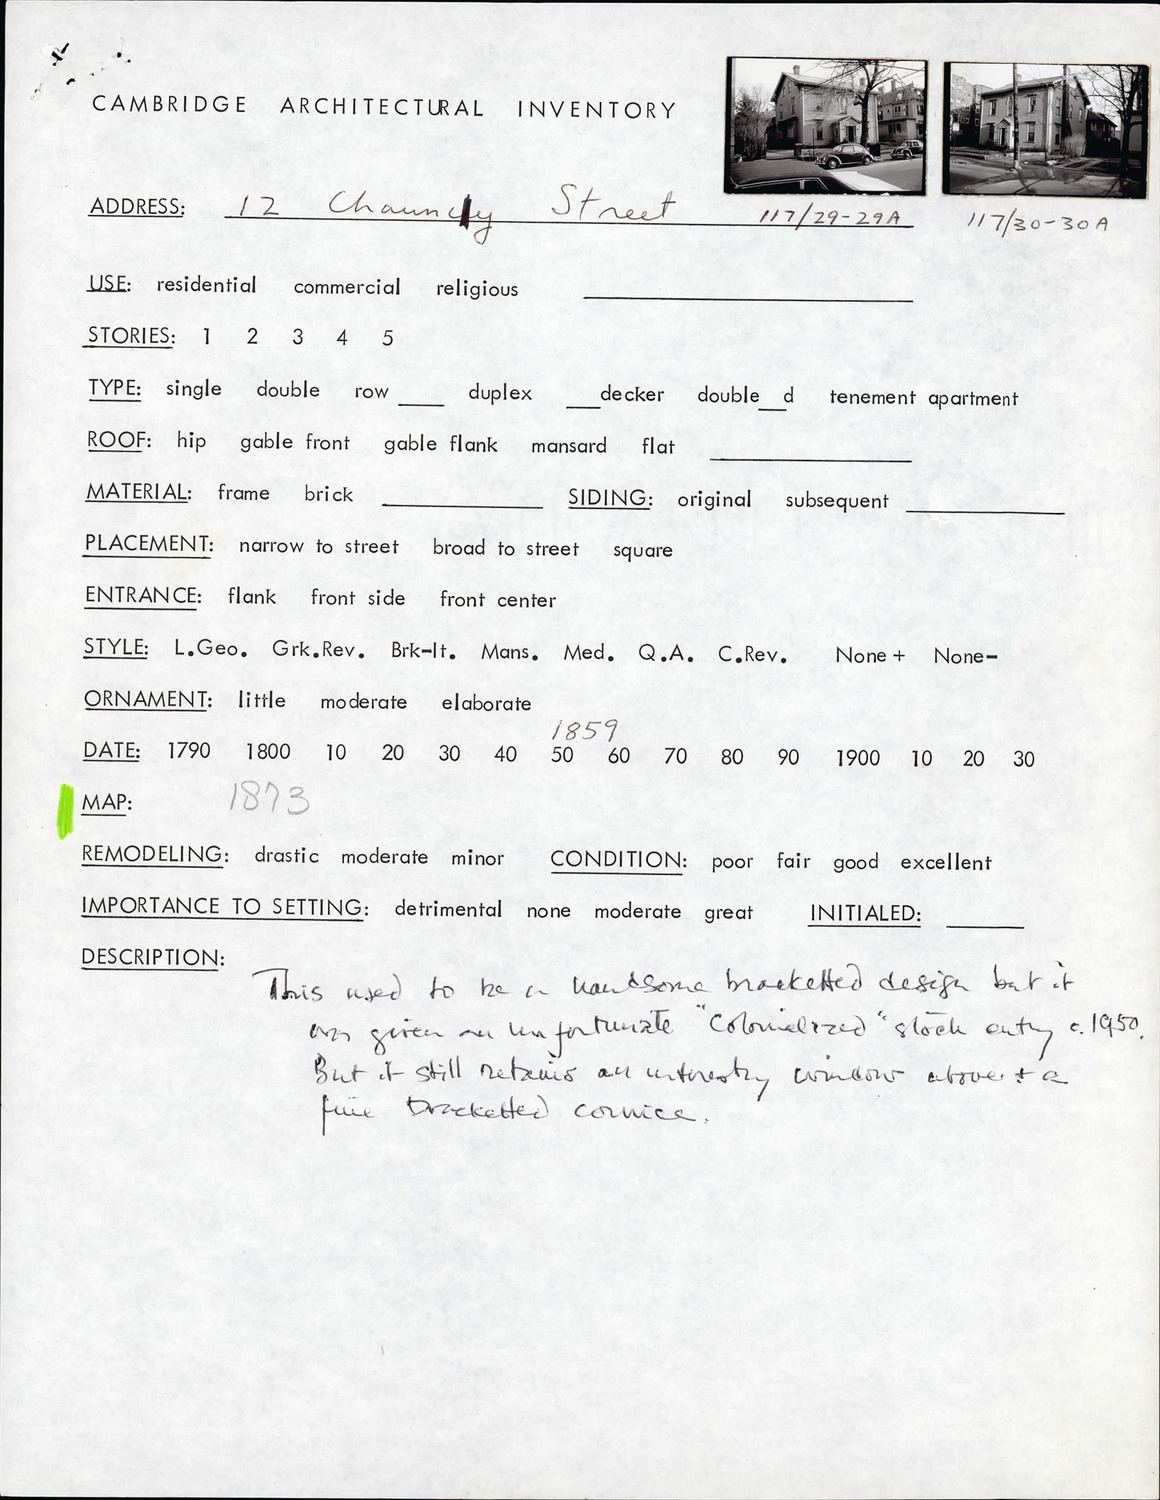 CAMBRIDGE ARCHITECTURAL INVENTORY
ADDRESS: 12 Chauncy Street 117/29-29A 117/30-30A
USE: residential commercial religious
STORIES: 1 2 3 4 5
TYPE: single double row ____ duplex ___decker double___d tenement apartment
ROOF: hip gable front gable flank mansard flat
MATERIAL: frame brick ____ SIDING: original subsequent ____
PLACEMENT: narrow to street broad to street square
ENTRANCE: flank front side front center
STYLE: L.Geo. Grk.Rev. Brk-It. Mans. Med. Q.A. C.Rev. None+ None-
ORNAMENT: little moderate elaborate
1859
DATE: 1790 1800 10 20 30 40 50 60 70 80 90 1900 10 20 30
MAP: 1873
REMODELING: drastic moderate minor CONDITION: poor fair good excellent
IMPORTANCE TO SETTING: detrimental none moderate great INITIALED: ____
DESCRIPTION:
This used to be a handsome bracketted design but it
was given an unfortunate "Colonialized" stock entry c. 1950.
But it still retains an interesting window above + a
fine bracketted cornice.